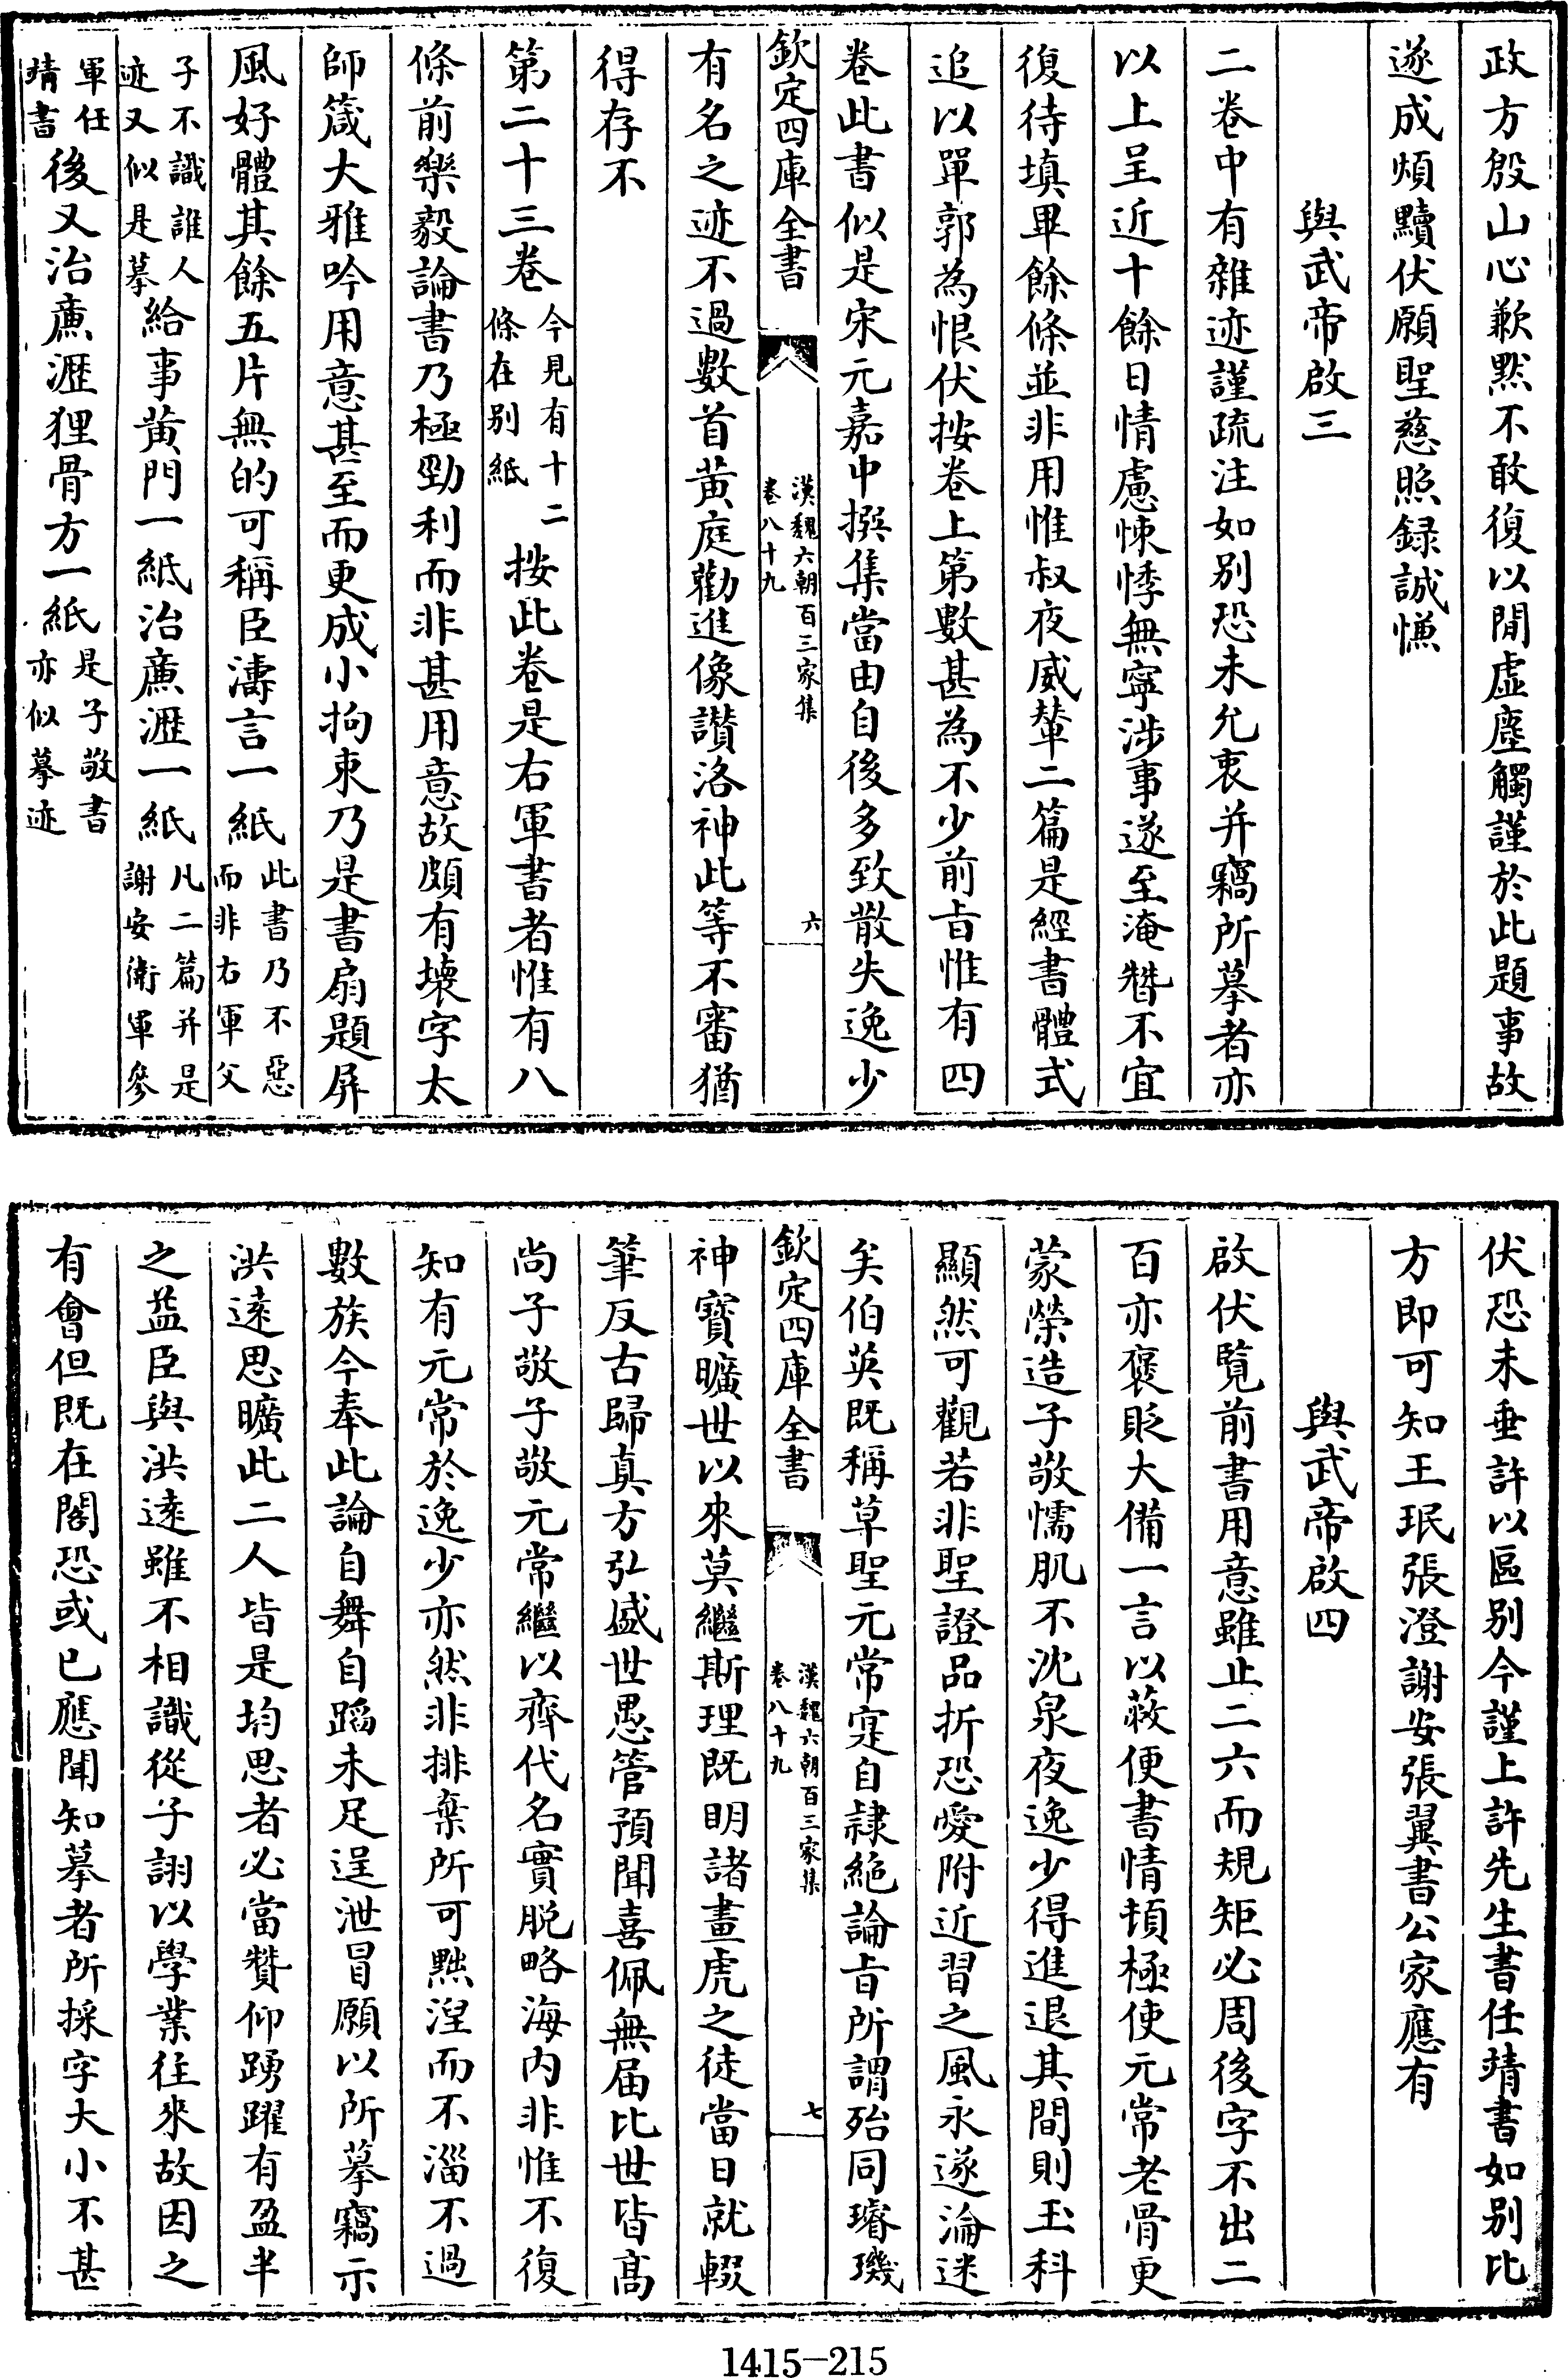 政方殷山心歉黙不敢復以閒虛塵觸謹於此題事故
遂成煩黷伏願聖慈照録誠慊
與武帝啟三
二卷中有雜迹謹疏注如别恐未允衷并竊所摹者亦
以上呈近十餘日情慮悚悸無寧涉事遂至淹替不宜
復待填畢餘條並非用惟叔夜威輦二篇是經書體式
追以單郭為恨伏按卷上第數甚為不少前㫖惟有四
卷此書似是宋元嘉中撰集當由自後多致散失逸少
欽定四庫全書
漢魏六朝百三家集
卷八十九
六
有名之迹不過數首黄庭勸進像讃洛神此等不審猶
得存不
第二十三卷今見有十二條在别紙按此卷是右軍書者惟有八
條前樂毅論書乃極勁利而非甚用意故頗有壞字太
師箴大雅吟用意甚至而更成小拘束乃是書扇題屏
風好體其餘五片無的可稱臣濤言一紙此書乃不惡而非右軍父
子不識誰人迹又似是摹給事黄門一紙治㢘瀝一紙凡二篇并是謝安衛軍參
軍任靖書後又治㢘瀝狸骨方一紙是子敬書亦似摹迹
伏恐未垂許以區别今謹上許先生書任靖書如别比
方即可知王珉張澄謝安張翼書公家應有
與武帝啟四
啟伏覧前書用意雖止二六而規矩必周後字不出二
百亦褒貶大備一言以蔽便書情頓極使元常老骨更
蒙榮造子敬懦肌不沈泉夜逸少得進退其間則玉科
顯然可觀若非聖證品折恐愛附近習之風永遂淪迷
矣伯英既稱草聖元常寔自隷絶論㫖所謂殆同璿璣
欽定四庫全書
漢魏六朝百三家集
卷八十九
七
神寶曠世以來莫繼斯理既明諸畫虎之徒當日就輟
筆反古歸真方弘盛世愚管預聞喜佩無届比世皆髙
尚子敬子敬元常繼以齊代名實脱略海内非惟不復
知有元常於逸少亦然非排棄所可黜涅而不淄不過
數族今奉此論自舞自蹈未足逞泄冒願以所摹竊示
洪逺思曠此二人皆是均思者必當贊仰踴躍有盈半
之益臣與洪逺雖不相識從子詡以學業往來故因之
有會但既在閣恐或已應聞知摹者所採字大小不甚
1415-215